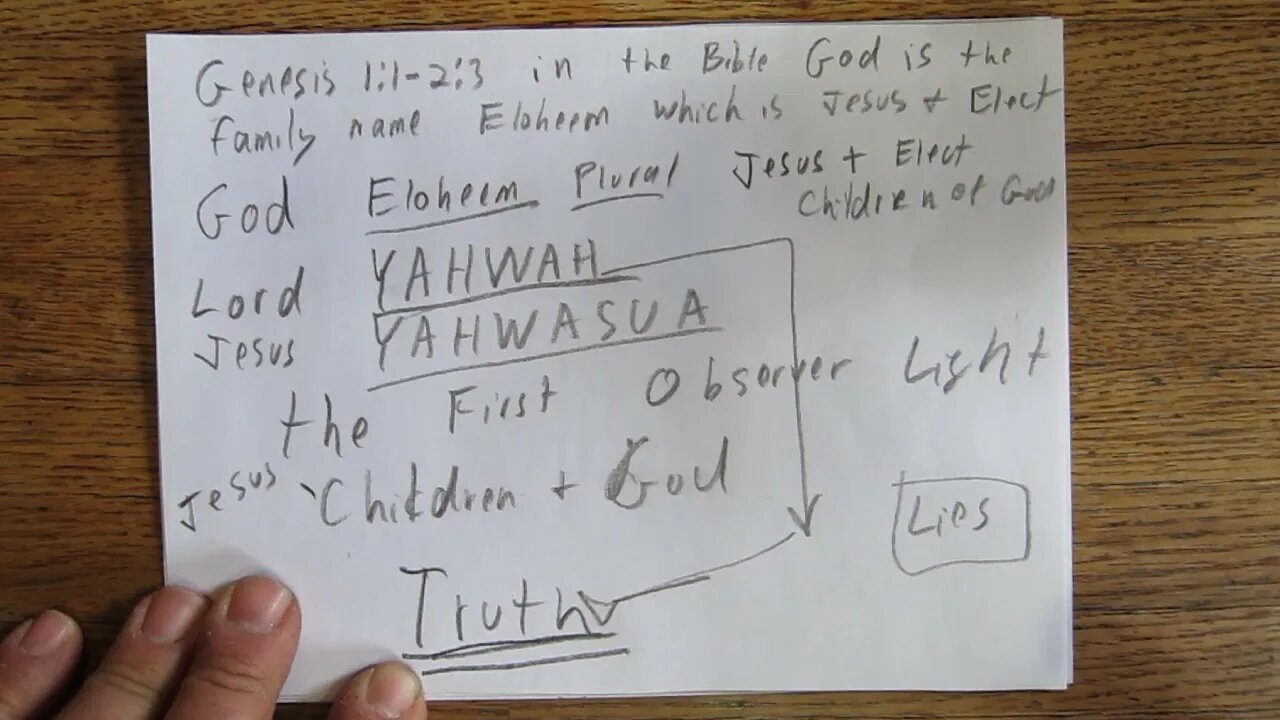 Genesis 1:1-2:3 in the Bible God is the
family name Eloheem which is Jesus + Elect
God Eloheem Plural Jesus + Elect
Children of God
Lord YAHWAH
Jesus YAHWASUA
the First Observer Light
Jesus Children + God
Lies
Truth